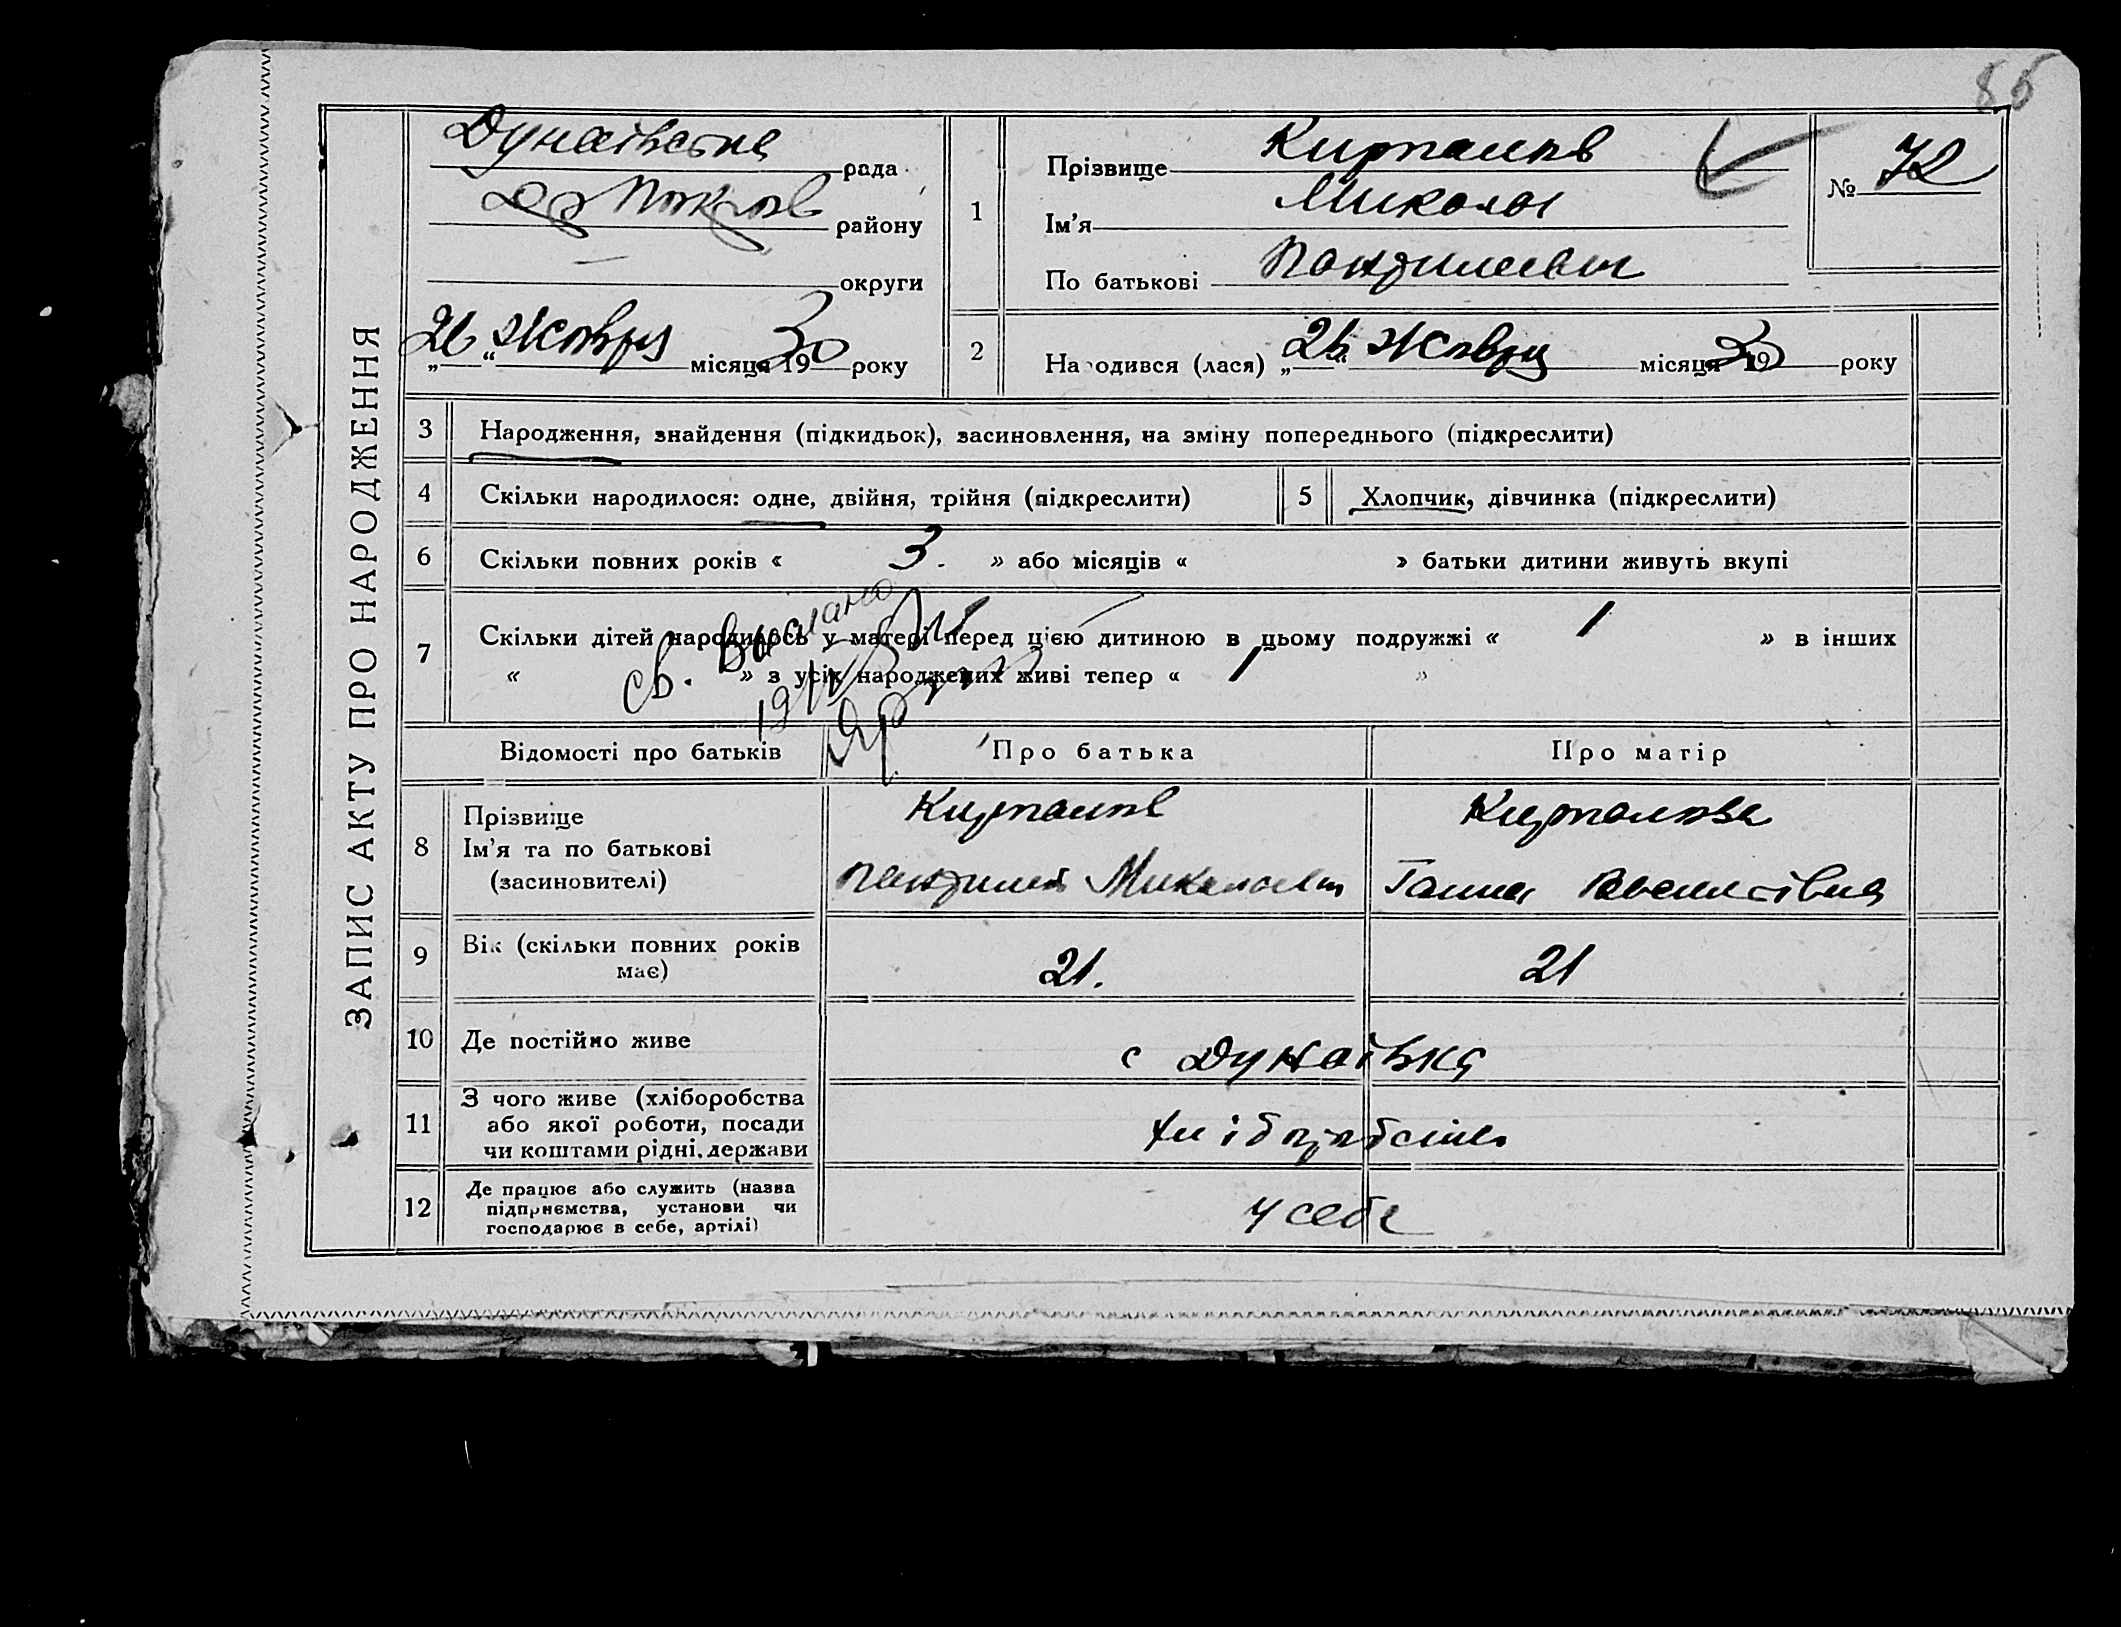 86
ЗАПИС АКТУ ПРО НАРОДЖЕННЯ
Дунаївська рада
району
округи
„26“ Жовтня місяця 1930 року
1
Прізвище
Ім'я Микола
По батькові
№ 72
2
Народився (лася) „26“ Жовтня місяця 1930 року
3 Народження, знайдення (підкидьок), засиновлення, на зміну попереднього (підкреслити)
4 Скільки народилося: одне, двійня, трійня (підкреслити)
5 Хлопчик, дівчинка (підкреслити)
6 Скільки повних років « 3. » або місяців « » батьки дитини живуть вкупі
7 Скільки дітей народилось у матері перед цією дитиною в цьому подружжі « 1 » в інших
« » з усіх народжених живі тепер « 1 »
Св. Выдано
Відомості про батьків Про батька Про матір
8 Прізвище
Ім'я та по батькові
(засиновителі)
Миколаєвич
Ганна Василівна
9 Вік (скільки повних років
має)
21. 21
10 Де постійно живе с Дунаївка
11 З чого живе (хліборобства
або якої роботи, посади
чи коштами рідні, держави
хліборобство
12 Де працює або служить (назва
підприємства, установи чи
господарює в себе, артілі)
у себе